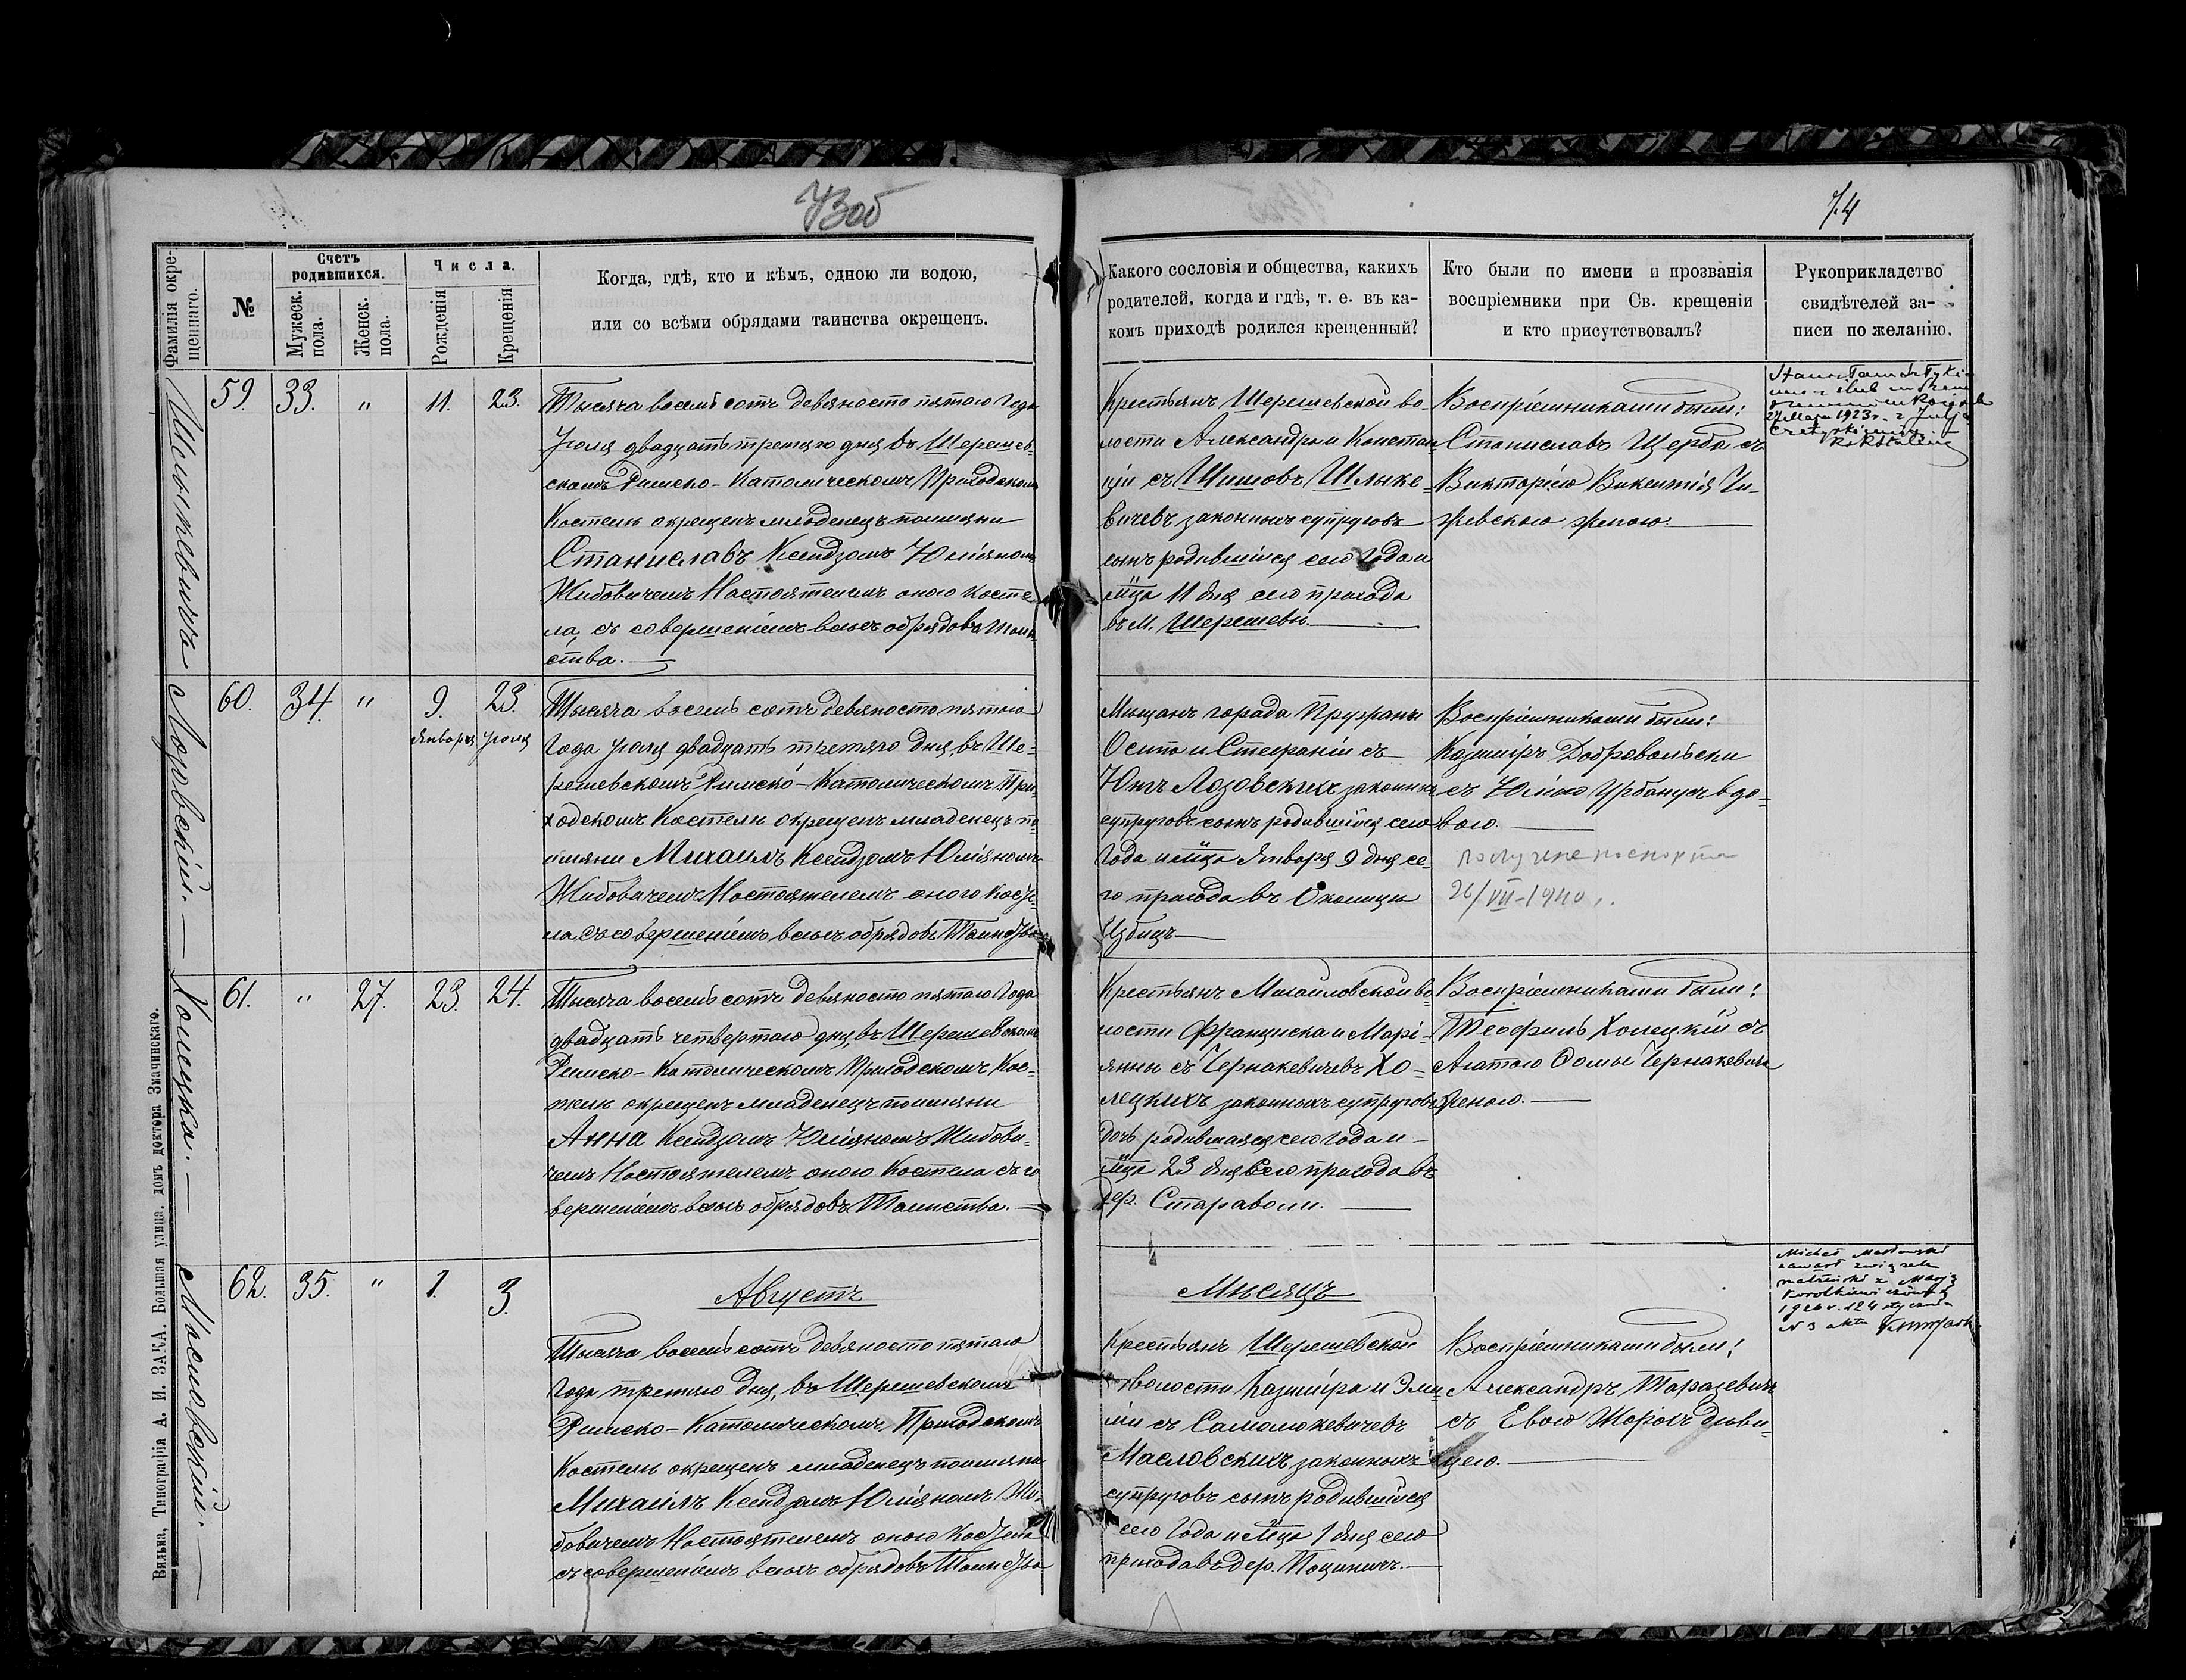 73об
74
Фамилія окре-
щеннаго.
№
Счетъ
родившихся.
Мужеск.
пола.
Женск.
пола.
Числа.
Рожденія
Крещенія
Когда, гдѣ, кто и кѣмъ, одною ли водою,
или со всѣми обрядами таинства окрещенъ.
Какого сословія и общества, какихъ
родителей, когда и гдѣ, т. е. въ ка-
комъ приходѣ родился крещенный?
Кто были по имени и прозванія
воспріемники при Св. крещеніи
и кто присутствовалъ?
Рукоприкладство
свидѣтелей за-
писи по желанію.
Шлыкевичъ
59. 33. " 11. 23.
Тысяча восемь сотъ девяносто пятого года
Іюля двадцать третяго дня въ Шерешев-
скомъ Римско-Католическомъ Приходскомъ
Костелѣ окрещенъ младенецъ поимяни
Станиславъ Ксендзомъ Юліяномъ
Жибовичемъ Настоятелемъ оного Косте-
ла, съ совершеніемъ всѣхъ обрядовъ Таин-
ства.
Крестьянъ Шерешевской во-
лости Александра и Констан-
ціи съ Шишовъ Шлыке-
вичевъ законныхъ супруговъ
сынъ родившійся сего года и
мца 11 дня сего прихода
въ М. Шерешевѣ.
Воспріемниками были:
Станиславъ Щерба съ
Викторіею Викентія Чи-
жевского женою.
27 Maja 1923 r. z Julją
60. 34. " 9. 23.
Января Іюля
Лозовскій.
Тысяча восемь сотъ девяносто пятого
Года Іюля двадцать третяго дня, въ Ше-
решевскомъ Римско-Католическомъ При-
ходскомъ Костелѣ окрещенъ младенецъ по-
имяни Михаилъ Ксендзомъ Юліяномъ
Жибовичемъ Настоятелемъ оного Косте-
ла съ совершеніемъ всѣхъ обрядовъ Таинства
Мѣщанъ города Пружаны
Осипа и Стефаніи съ
Юхъ Лозовскихъ законныхъ
супруговъ сынъ родившійся сего
года и мца Января 9 дня се-
го прихода въ Околицѣ
Избицъ
Воспріемниками были:
Казиміръ Добровольски
съ Юліею Урбанусъ вдо-
вою.
26/VII-1940
Холецка.
61. " 27. 23. 24.
Тысяча восемь сотъ девяносто пятого года
двадцать четвертого дня, въ Шерешевскомъ
Римско-Католическомъ Приходскомъ Кос-
телѣ окрещенъ младенецъ поимяни
Анна Ксендзомъ Юліяномъ Жибови-
чемъ Настоятелемъ оного Костела съ со
вершеніемъ всѣхъ обрядовъ Таинства.
Крестьянъ Михайловской во-
лости Франциска и Марі-
янны съ Чернакевичевъ Хо-
лецкихъ законныхъ супруговъ
дочь родившаяся сего года и
мца 23 дня сего прихода въ
дер. Староволи.
Воспріемниками были:
Теофиль Холецкій съ
Агатою Фомы Чернакевича
женою.
Масловскій.
62. 35. " 1. 3.
Августъ
Тысяча восемь сотъ девяносто пятого
года третяго дня, въ Шерешевскомъ
Римско-Католическомъ Приходскомъ
Костелѣ окрещенъ младенецъ поимяни
Михаилъ Ксендзомъ Юліяномъ Жи-
бовичемъ Настоятелемъ оного Костела
съ совершеніемъ всѣхъ обрядовъ Таинства
Мѣсяцъ
Крестьянъ Шерешевской
волости Казиміра и Эми-
ліи съ Самолюкевичевъ
Масловскихъ законныхъ
супруговъ сынъ родившійся
сего года и мца 1 дня сего
прихода въ дер.
Воспріемниками были:
Александръ Таразевичъ
съ Евою Жорохъ дѣви-
цею.
Michał Masłowski
zawarł związek
małżeński z Marją
Вильна, Типографія А. И. ЗАКА. Большая улица, домъ доктора Значинскаго.